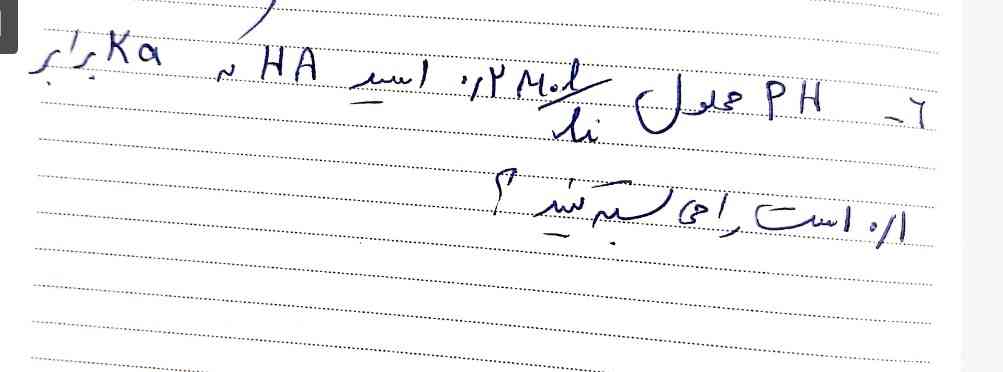 ۶- PH محلول ۰٫۲ Mol/li اسید HA که Ka برابر
۰/۱ است را محاسبه کنید ؟